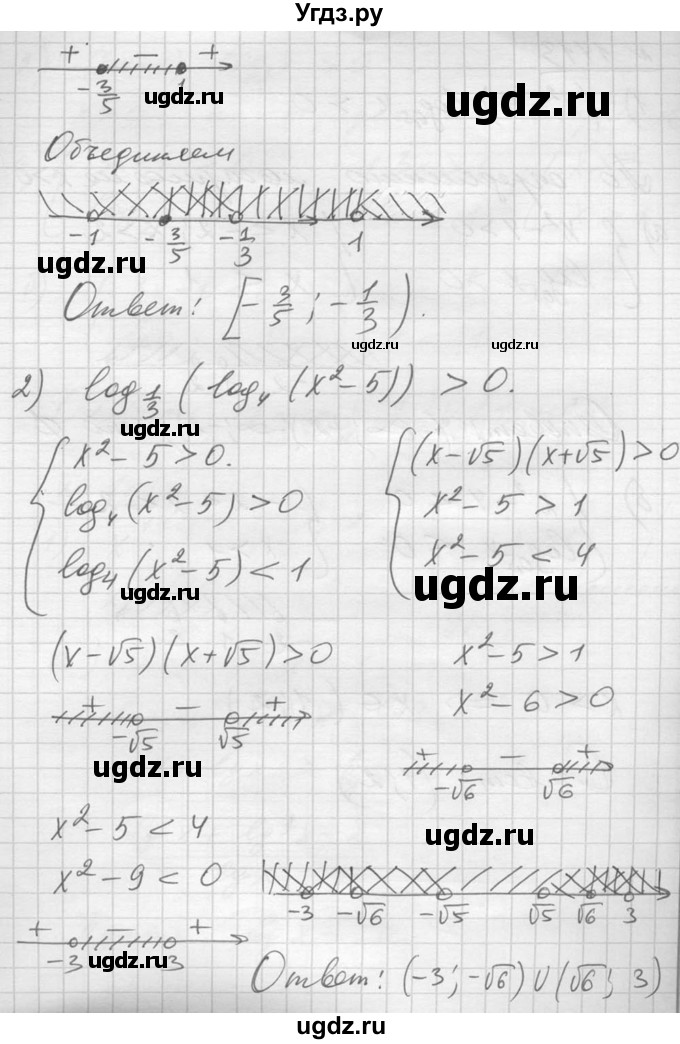 Угдз.ру
+ − +
-3/5 1
ugdz.ru ugdz.ru
Объединяем
-1 -3/5 -1/3 1
ugdz.ru
Ответ: [-3/5; -1/3).
ugdz.ru ugdz.ru
2) log_{1/3} (log_4 (x² - 5)) > 0.
ugdz.ru
{ x² - 5 > 0.
log_4 (x² - 5) > 0
log_4 (x² - 5) < 1
ugdz.ru
{ (x - √5)(x + √5) > 0
x² - 5 > 1
x² - 5 < 4
ugdz.ru
(x - √5)(x + √5) > 0
+ − +
-√5 √5
ugdz.ru
x² - 5 > 1
x² - 6 > 0
+ − +
-√6 √6
ugdz.ru
x² - 5 < 4
x² - 9 < 0
+ − +
-3 3
ugdz.ru
-3 -√6 -√5 √5 √6 3
Ответ: (-3; -√6) ∪ (√6; 3)
ugdz.ru
ugdz.ru